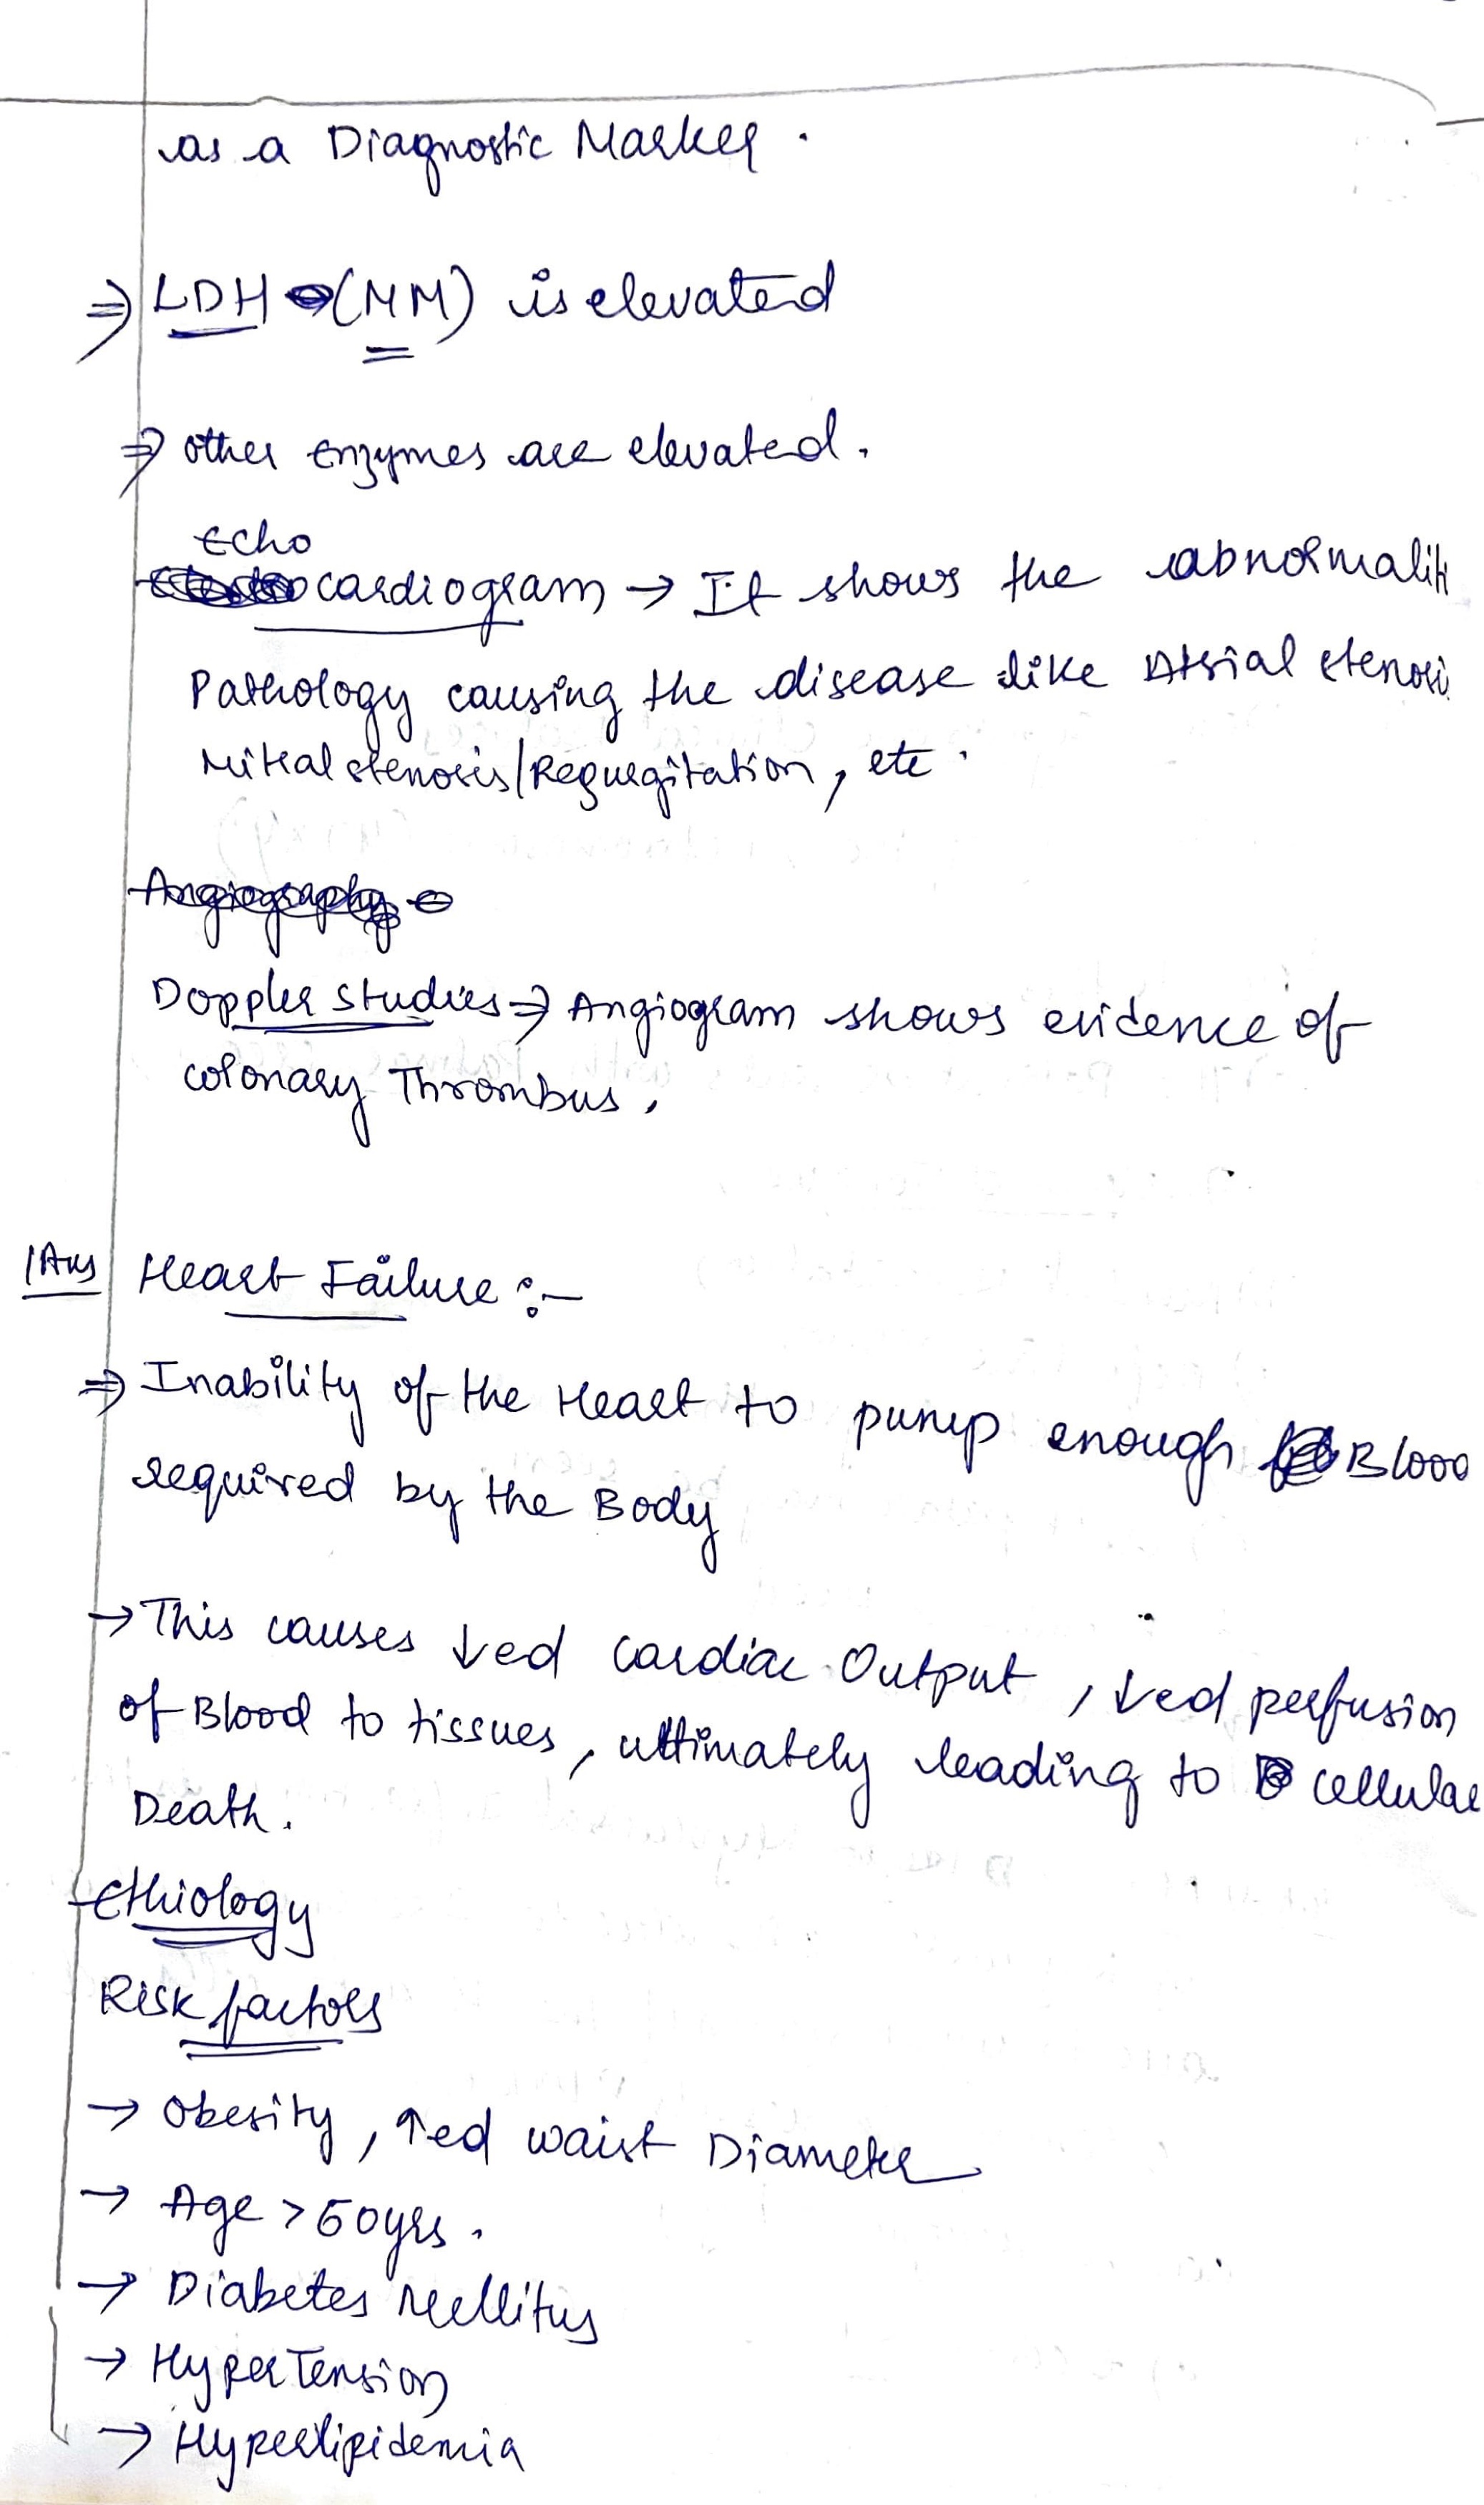 as a Diagnostic Marker.
⇒ LDH (MM) is elevated
⇒ other enzymes are elevated.
Echo
cardiogram → It shows the abnormaliti
Pathology causing the disease like Atrial stenosi
Mitral stenosis/Regurgitation, etc.
Angiography
Doppler studies ⇒ Angiogram shows evidence of
coronary Thrombus.
1Ans Heart Failure :-
⇒ Inability of the Heart to pump enough Blood
required by the Body
→ This causes ↓ed cardiac Output, ↓ed perfusion
of Blood to tissues, ultimately leading to cellular
Death.
Ethiology
Risk factors
→ Obesity, ↑ed waist Diameter
→ Age > 60yrs.
→ Diabetes Mellitus
→ HyperTension
→ Hyperlipidemia